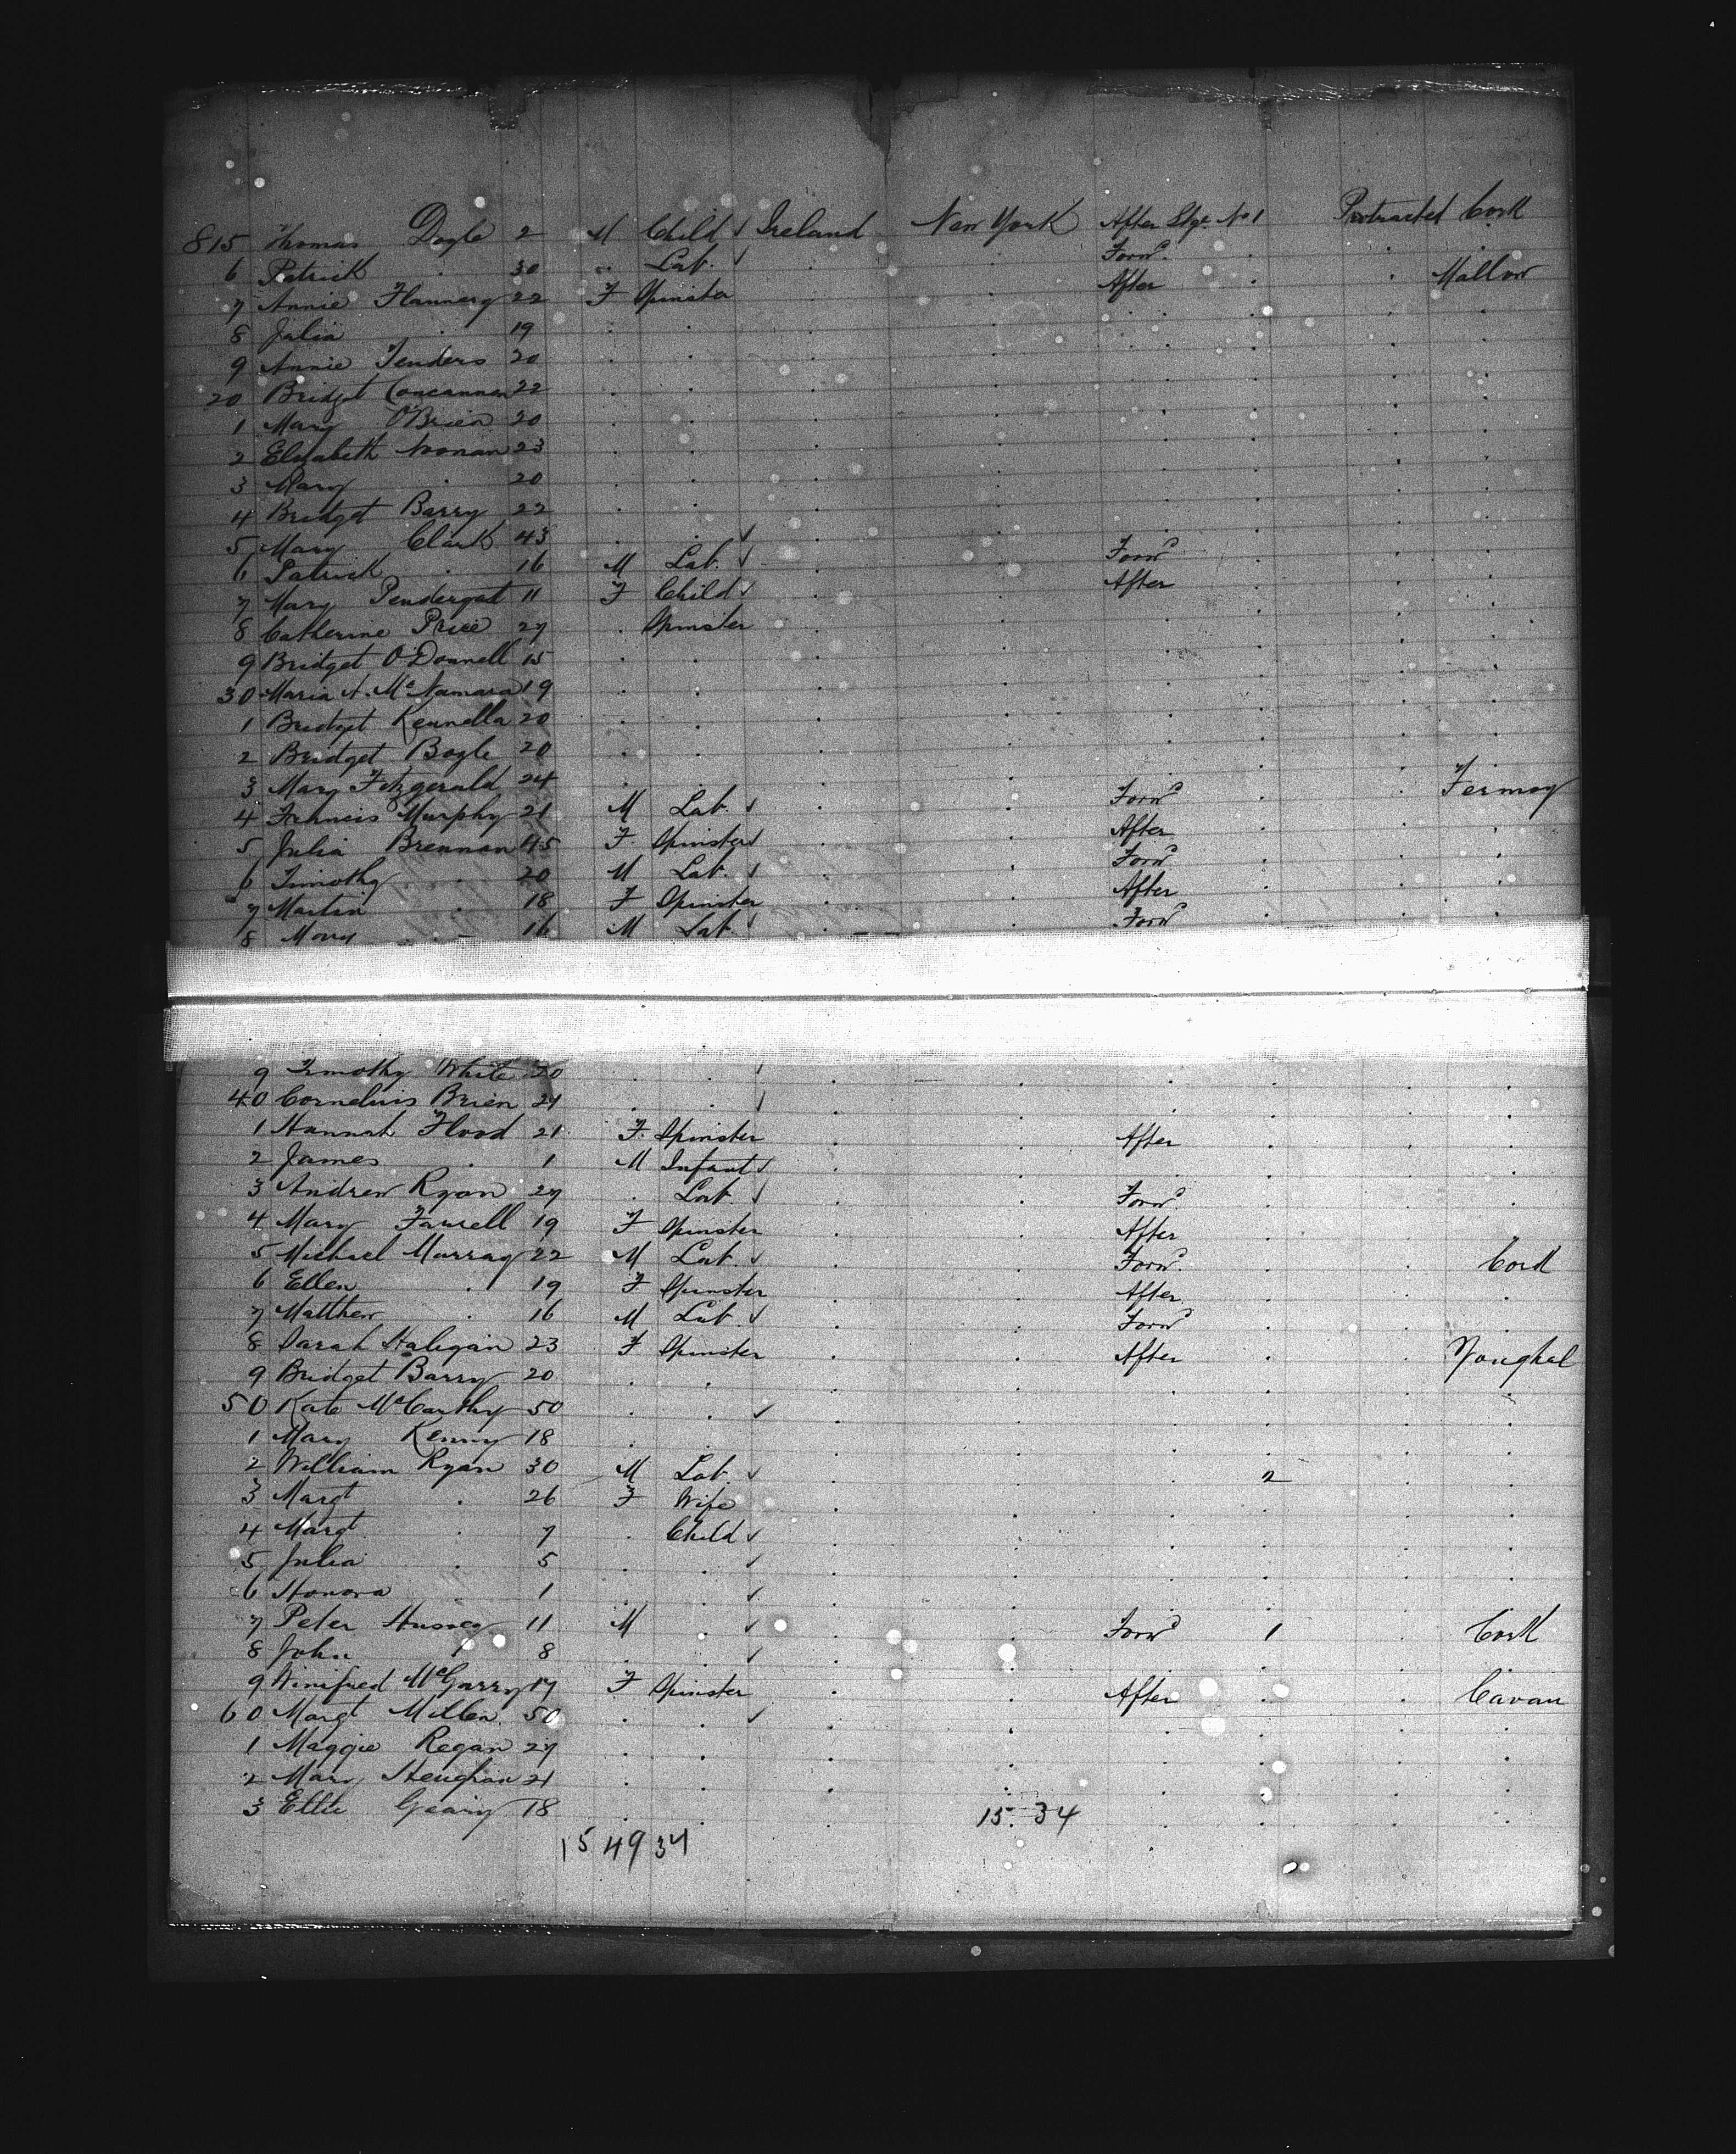 815 Thomas Doyle 2 M Child ✓ Ireland New York After Stge. No 1 Protracted Cork
6 Patrick . 30 .. Lab. ✓ . . Forwd . .
7 Annie Flannery 22 F Spinster . . After . . Mallow
8 Julia . 19
9 Annie Tenders 20
20 Bridget Concannon 22
1 Mary O'Brien 20
2 Elizabeth Noonan 23
3 Mary . 20
4 Bridget Barry 22
5 Mary Clark 43 ✓
6 Patrick . 16 M Lab. ✓ Forwd
7 Mary Pendergat 11 F Child ✓ After
8 Catherine Price 27 . Spinster
9 Bridget O'Donnell 15
30 Maria A. McNamara 19
1 Bridget Kennella 20
2 Bridget Boyle 20
3 Mary Fitzgerald 24
4 Francis Murphy 21 M Lab. ✓ Forwd Fermoy
5 Julia Brennan 45 F. Spinster ✓ After
6 Timothy . 20 M Lab. ✓ Forwd
7 Martin . 18 F Spinster After
8 Mary . 16 M Lab. ✓ Forwd
9 Timothy White 20 ✓
40 Cornelius Brien 27 ✓
1 Hannah Flood 21 F. Spinster After
2 James . 1 M Infant ✓
3 Andrew Ryan 27 . Lab. ✓ Forwd
4 Mary Farrell 19 F Spinster After
5 Michael Murray 22 M Lab. ✓ Forwd Cork
6 Ellen . 19 F Spinster After
7 Matthew . 16 M Lab. ✓ Forwd
8 Sarah Haligan 23 F Spinster After Youghal
9 Bridget Barry 20
50 Kate McCarthy 50 ✓
1 Mary Kenny 18
2 William Ryan 30 M Lab. ✓ . 2
3 Margt . 26 F Wife
4 Margt . 7 . Child ✓
5 Julia . 5 ✓
6 Honora . 1 ✓
7 Peter Hussey 11 M . ✓ Forwd 1 Cork
8 John 8 ✓
9 Winifred McGarry 17 F Spinster After Cavan
60 Margt Millen 50 ✓
1 Maggie Regan 27
2 Mary Heughan 21
3 Ellie Geary 18
15. 34
15 49 34